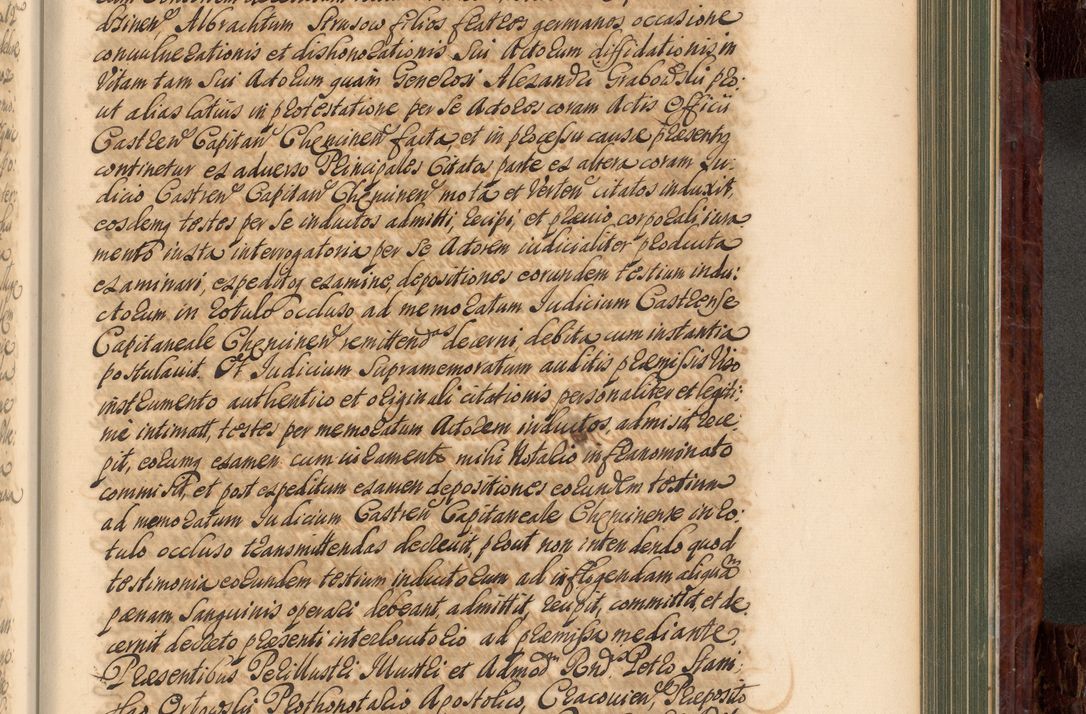 dzinen. Albrachtum Strusow filios fratres germanos occasione
convulnerationis et dishonorationis sui Actorum diffidationis in
vitam tam sui Actorum quam Generosi Alexandri Grabowski pro:
ut alias latius in protestatione per se Actores coram Actis Officii
Castren Capitan Chencinen facta, et in processu causæ præsentis
continetur ex adverso Principales Citatos parte ex altera coram Ju:
dicio Castren Capitan Chencinen mota et verten citatos induxit,
eosdemq testes per se inductos admitti, recipi, et prævio corporali iura
mento iuxta interrogatoria per se Actorem iudicialiter producta
examinari, expeditoq examine, depositiones eorundem testium indu:
ctorum in rotulo occluso ad memoratum Judicium Castrense
Capitaneale Chencinen remittendas decerni debita cum instantia
postulavit. Et Judicium Supramemoratum auditis præmissis viso
instrumento authentico et originali citationis personaliter et legiti:
mè intimatæ, testes per memoratum Actorem inductos, admisit rece:
pit, eorumq examen cum iuramento mihi Notario infranominato
commisit, et post expeditum examen depositiones eorundem testium
ad memoratum Judicium Castren Capitaneale Chencinense in ro:
tulo occluso transmittendas decrevit, prout non intendendo quod
testimonia eorundem testium inductorum ad infligendam aliquam
pænam sanguinis operari debeant, admittit, recipit, committit, et de:
cernit decreto præsenti interlocutorio ad præmissa mediante.
Præsentibus Perillustri Illustri et Admod Rndis Petro Stani:
slao Orłowski Prothonotario Apostolico, Cracovien, Præposito